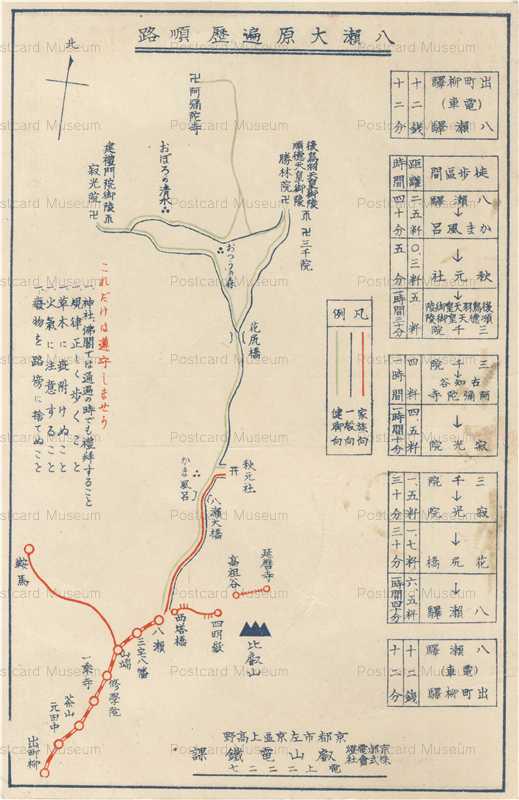 八瀬大原遍歴順路
北
卍阿彌陀寺
おぼろの清水
建禮門院御陵
寂光院卍
後鳥羽天皇御陵
順徳天皇御陵
勝林院卍
卍三千院
おつうの森
花尻橋
秋元社
八瀬大橋
かま風呂
凡例
家族向
一般向
健脚向
これだけは遵守しませう
一、神社、佛閣では通過の時でも禮拜すること
一、規律正しく歩くこと
一、草木に
一、火氣に注意すること
一、癈物を路傍に捨てぬこと
鞍馬
延暦寺
高祖谷
四明嶽
西塔橋
比叡山
八瀬
三宅八幡
山端
修學院
一乘寺
茶山
元田中
出町柳
出町柳驛
(電車)
八瀬驛
十二錢
十二分
徒歩區間
距離
時間
八瀬驛
↓
かま風呂
二、五粁
四十分
↓
秋元社
〇、三粁
五分
↓
後鳥羽天皇御陵
順德天皇御陵
三千院
五粁
一時間三十分
三千院
↓
古知谷
阿彌陀寺
四粁
一時間
↓
寂光院
四、五粁
一時間十分
三千院
↓
寂光院
一、五粁
三十分
↓
花尻橋
一、七粁
三十分
↓
八瀬驛
六、五粁
一時間四十分
八瀬驛
(電車)
出町柳驛
十二錢
十二分
京都市左京區上高野
京都電燈株式會社
叡山電鐵課
電上二二二七
Postcard Museum